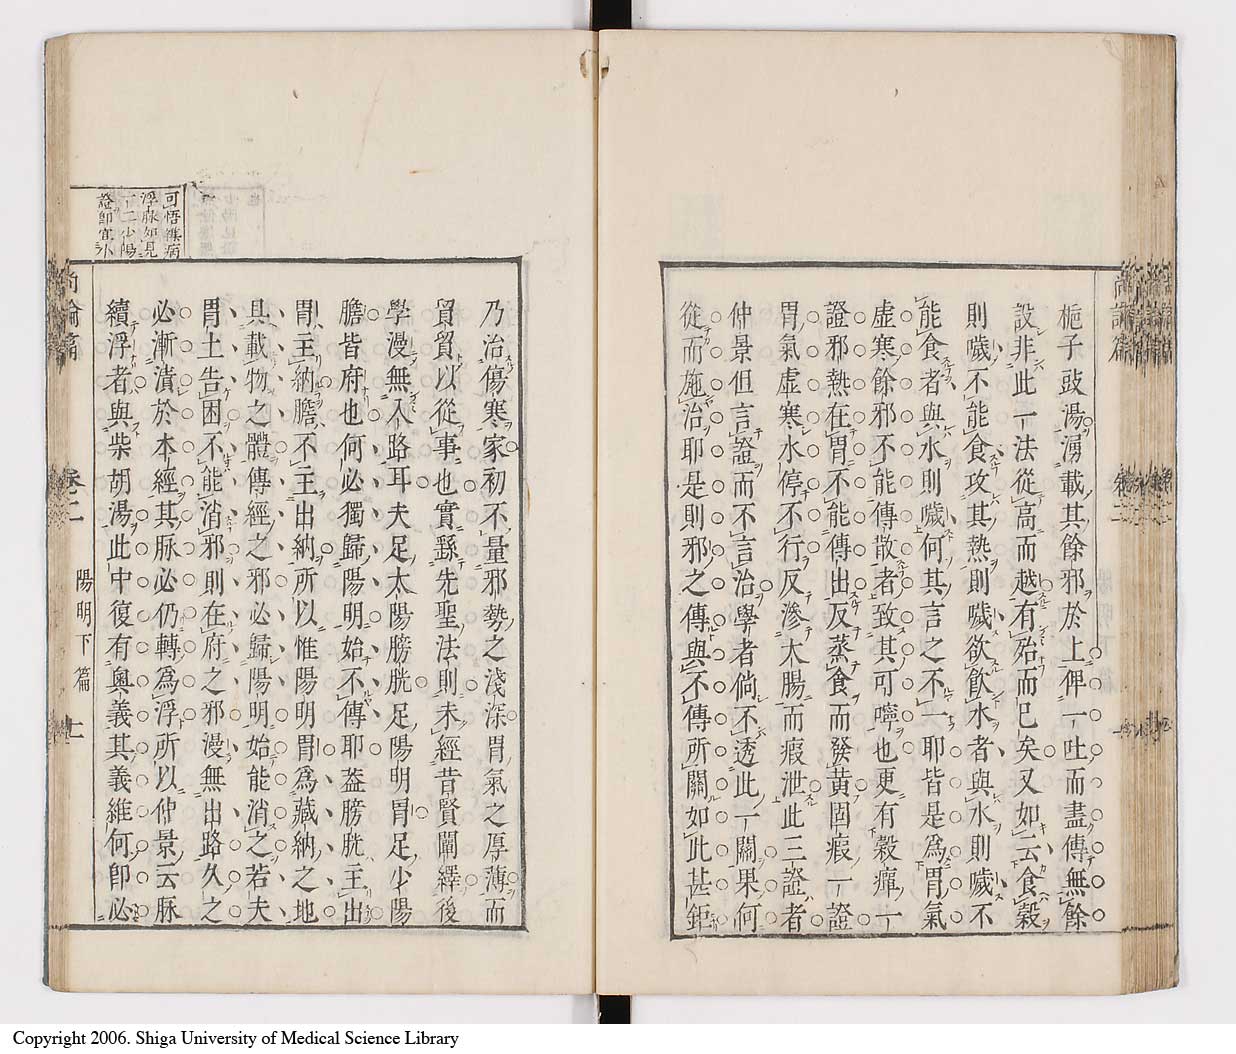 梔子豉湯湧載其餘邪於上俾一吐而盡傳無餘
設非此一法從高而越有殆而已矣又如云食穀
則噦不能食攻其熱則噦欲飲水者與水則噦不
能食者與水則噦何其言之不一耶皆是爲胃氣
虛寒餘邪不能傳散者致其可嚀也更有穀癉一
證邪熱在胃不能傳出反蒸食而發黃固瘕一證
胃氣虛寒水停不行反滲大腸而瘕泄此三證者
仲景但言證而不言治學者倘不透此一關果何
從而施治耶是則邪之傳與不傳所關如此甚鉅
乃治傷寒家初不量邪勢之淺深胃氣之厚薄而
貿貿以從事也實繇先聖法則未經昔賢闡繹後
學漫無入路耳夫足太陽膀胱足陽明胃足少陽
膽皆府也何必獨歸陽明始不傳耶蓋膀胱主出
胃主納膽不主出納所以惟陽明胃爲藏納之地
具載物之體傳經之邪必歸陽明始能消之若夫
胃土告困不能消邪則在府之邪漫無出路久之
必漸漬於本經其脉必仍轉爲浮所以仲景云脉
續浮者與柴胡湯此中復有奧義其義維何卽必
可悟雜病
浮脉如見
一二少陽
證卽宜小
尚論篇
卷二
陽明下篇